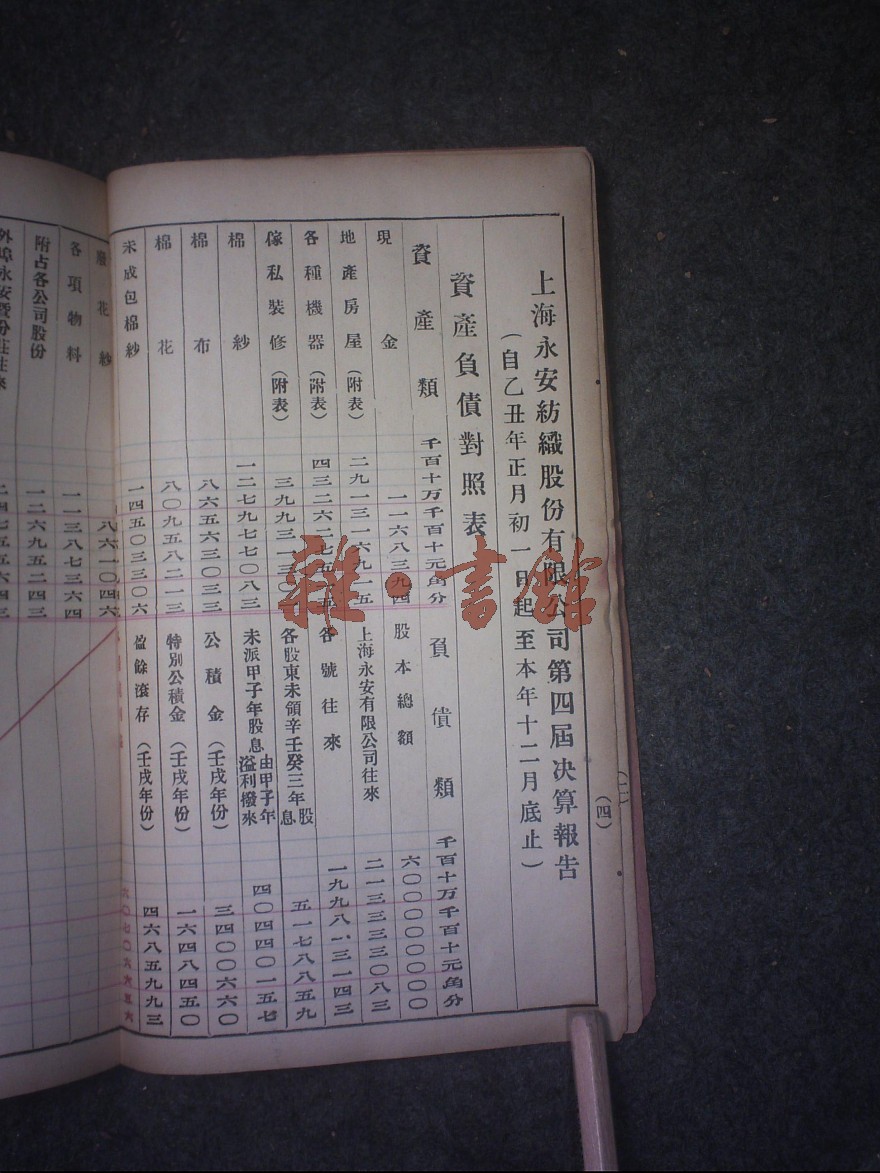 上海永安紡織股份有限公司第四屆决算報告
（自乙丑年正月初一日起至本年十二月底止）
資產負債對照表
資產類 千百十万千百十元角分
負債類 千百十万千百十元角分
現金 一一六八三九四
股本總額 六〇〇〇〇〇〇〇〇
地產房屋（附表） 二九一三一六九一五
上海永安有限公司往來 二一三三三三〇八三
各種機器（附表）
各號往來
傢私裝修（附表）
各股東未領辛壬癸三年股息 五一七八八五九
棉紗 一二七九七七〇八三
未派甲子年股息 由甲子年溢利撥來 四〇四四〇一五七
棉布 八六五六三〇三三
公積金（壬戌年份） 三四〇〇六六〇
棉花 八〇九五八二一三
特別公積金（壬戌年份） 一六四八四五〇
未成包棉紗 一四五〇三三〇六
盈餘滾存（壬戌年份） 四六八五九九三
廢花紗 八六一〇四六
各項物料 一一三八七三六四
附占各公司股份 一二六九五二四三
外埠永安曁分莊往來
（四）
雜·書館